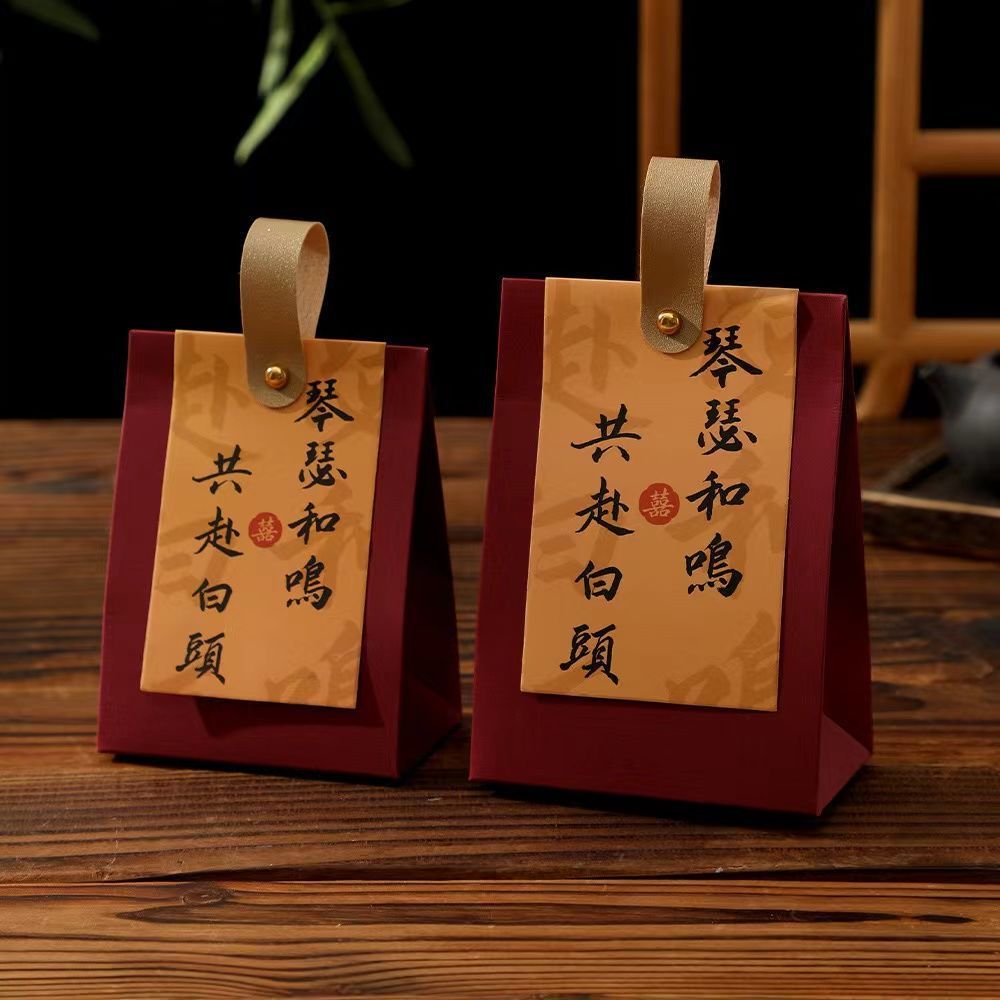 琴瑟和鳴
共赴白頭
囍
琴瑟和鳴
共赴白頭
囍